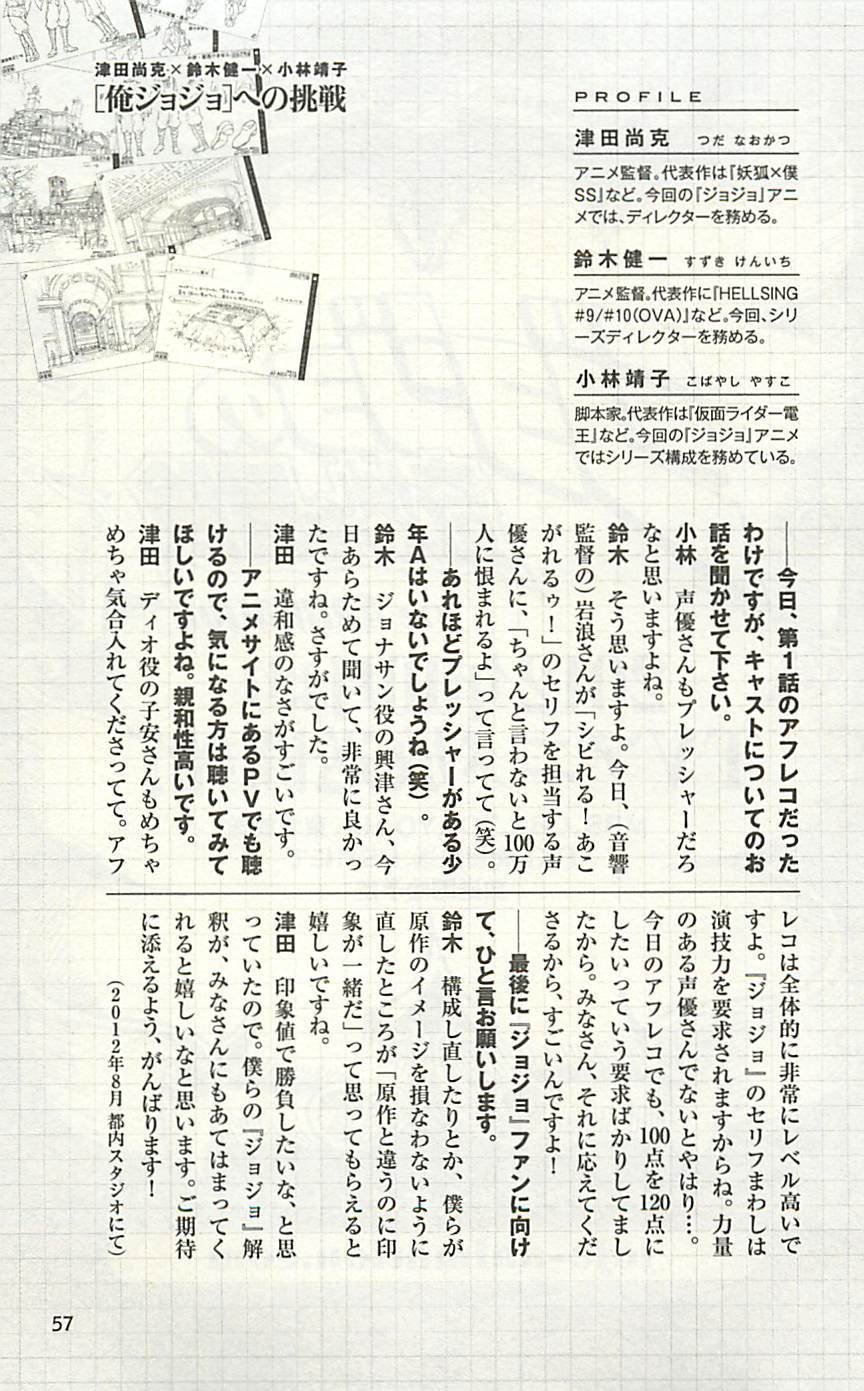 津田尚克×鈴木健一×小林靖子
[俺ジョジョ]への挑戦
PROFILE
津田尚克 つだ なおかつ
アニメ監督。代表作は『妖狐×僕
SS』など。今回の『ジョジョ』アニ
メでは、ディレクターを務める。
鈴木健一 すずき けんいち
アニメ監督。代表作に『HELLSING
#9/#10(OVA)』など。今回、シリ
ーズディレクターを務める。
小林靖子 こばやし やすこ
脚本家。代表作は『仮面ライダー電
王』など。今回の『ジョジョ』アニメ
ではシリーズ構成を務めている。
――今日、第1話のアフレコだった
わけですが、キャストについてのお
話を聞かせて下さい。
小林 声優さんもプレッシャーだろ
なと思いますよね。
鈴木 そう思いますよ。今日、(音響
監督の)岩浪さんが「シビれる!あこ
がれるゥ!」のセリフを担当する声
優さんに、「ちゃんと言わないと100万
人に恨まれるよ」って言ってて(笑)。
――あれほどプレッシャーがある少
年Aはいないでしょうね(笑)。
鈴木 ジョナサン役の興津さん、今
日あらためて聞いて、非常に良かっ
たですね。さすがでした。
津田 違和感のなさがすごいです。
――アニメサイトにあるPVでも聴
けるので、気になる方は聴いてみて
ほしいですよね。親和性高いです。
津田 ディオ役の子安さんもめちゃ
めちゃ気合入れてくださってて。アフ
レコは全体的に非常にレベル高いで
すよ。『ジョジョ』のセリフまわしは
演技力を要求されますからね。力量
のある声優さんでないとやはり…。
今日のアフレコでも、100点を120点に
したいっていう要求ばかりしてまし
たから。みなさん、それに応えてくだ
さるから、すごいんですよ!
――最後に『ジョジョ』ファンに向け
て、ひと言お願いします。
鈴木 構成し直したりとか、僕らが
原作のイメージを損なわないように
直したところが「原作と違うのに印
象が一緒だ」って思ってもらえると
嬉しいですね。
津田 印象値で勝負したいな、と思
っていたので。僕らの『ジョジョ』解
釈が、みなさんにもあてはまってく
れると嬉しいなと思います。ご期待
に添えるよう、がんばります!
(2012年8月 都内スタジオにて)
57